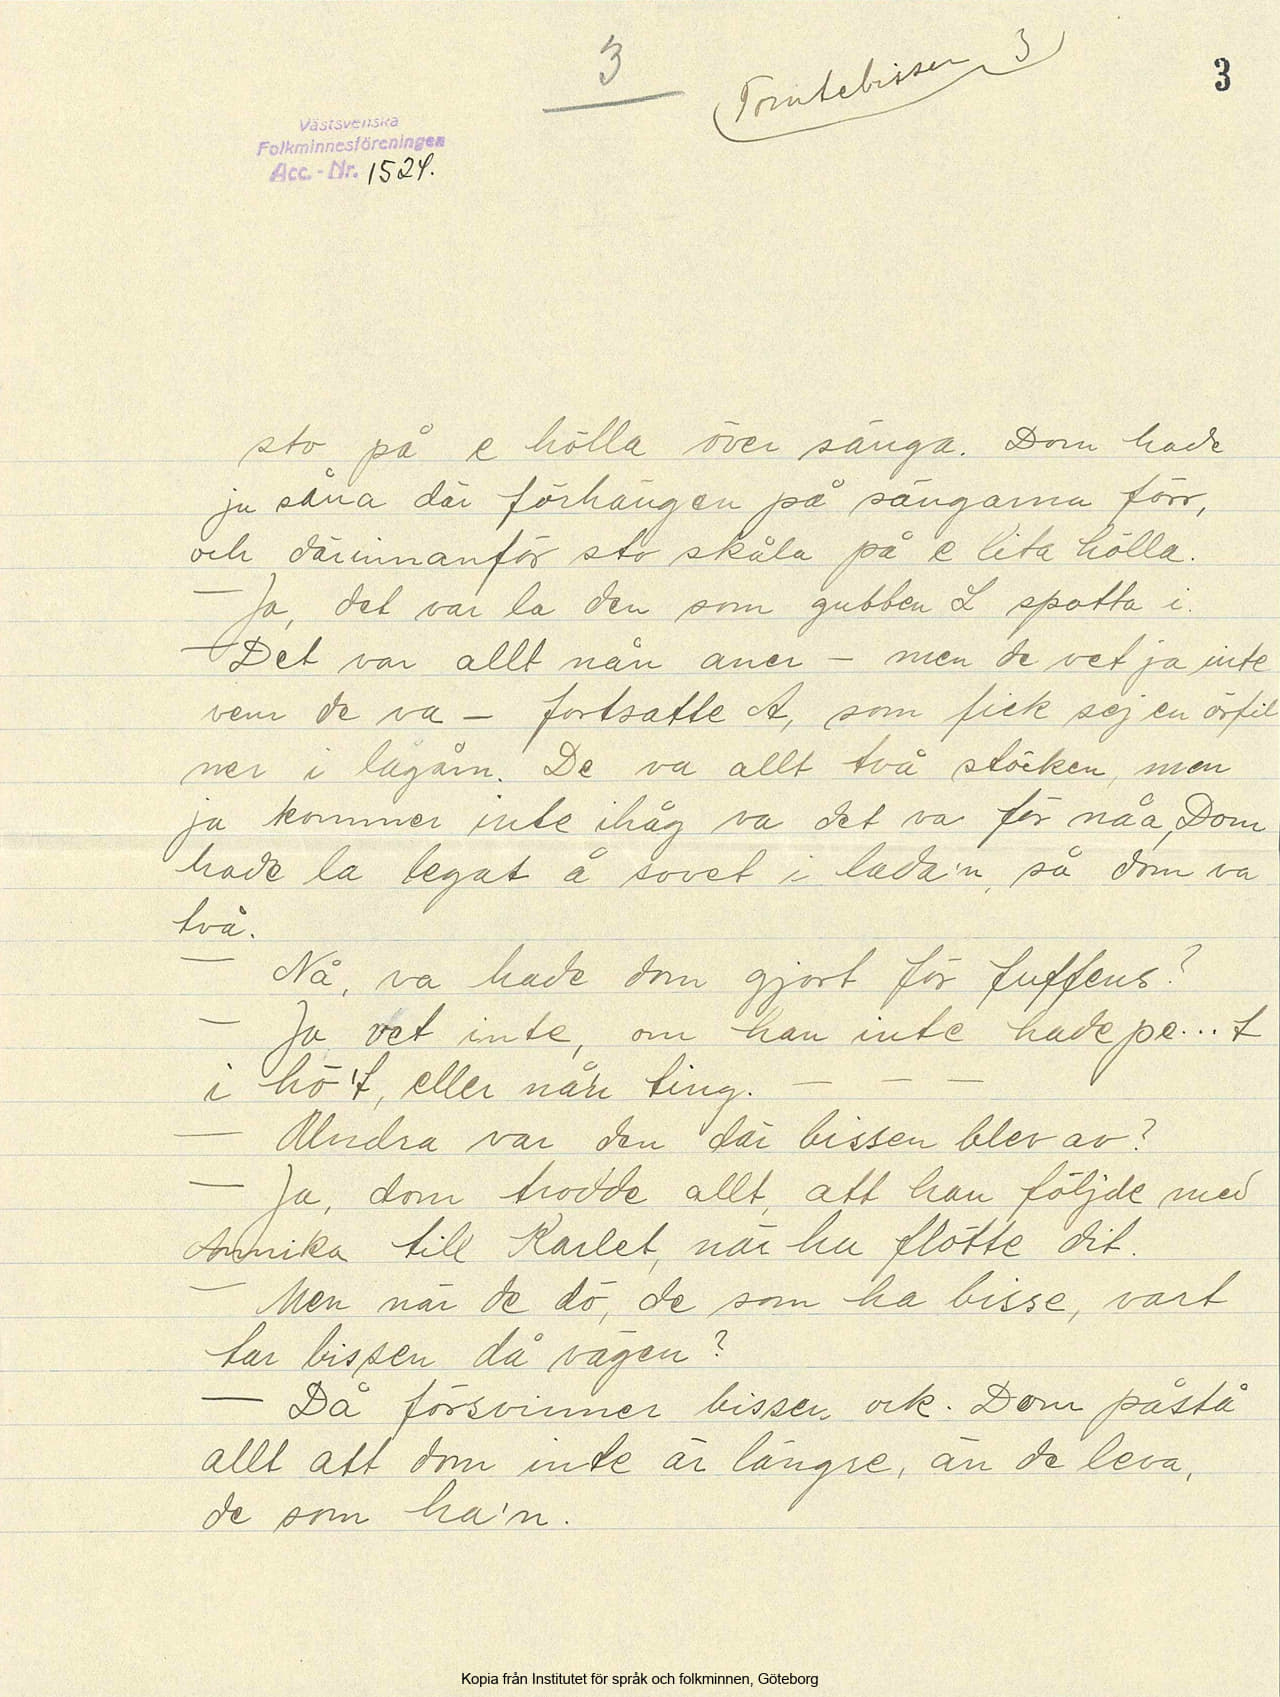 3
Tomtebissen 3
3
Västsvenska
Folkminnesföreningen
Acc. - Nr. 1524.
sto på e hölla över sänga. Dom hade
ju såna där förhängen på sängarna förr,
och därinnanför sto skåla på e lita hölla.
— Ja, det var la den som gubben L spotta i.
— Det var allt nån aner — men de vet ja inte
vem de va — fortsatte A, som fick sej en örfil
ner i lågårn. De va allt två stöcken, men
ja kommer inte ihåg va det va för nåa, Dom
hade la legat å sovet i lada'n, så dom va
två.
— Nå, va hade dom gjort för fuffens?
— Ja vet inte, om han inte hade pe...t
i hö't, eller nå'n ting. — — —
— Undra var den där bissen blev av?
— Ja, dom trodde allt, att han följde med
Annika till Karlet, när hu flötte dit.
— Men när de dö, de som ha bisse, vart
tar bissen då vägen?
— Då försvinner bissen ock. Dom påstå
allt att dom inte är längre, än de leva,
de som ha'n.
Kopia från Institutet för språk och folkminnen, Göteborg